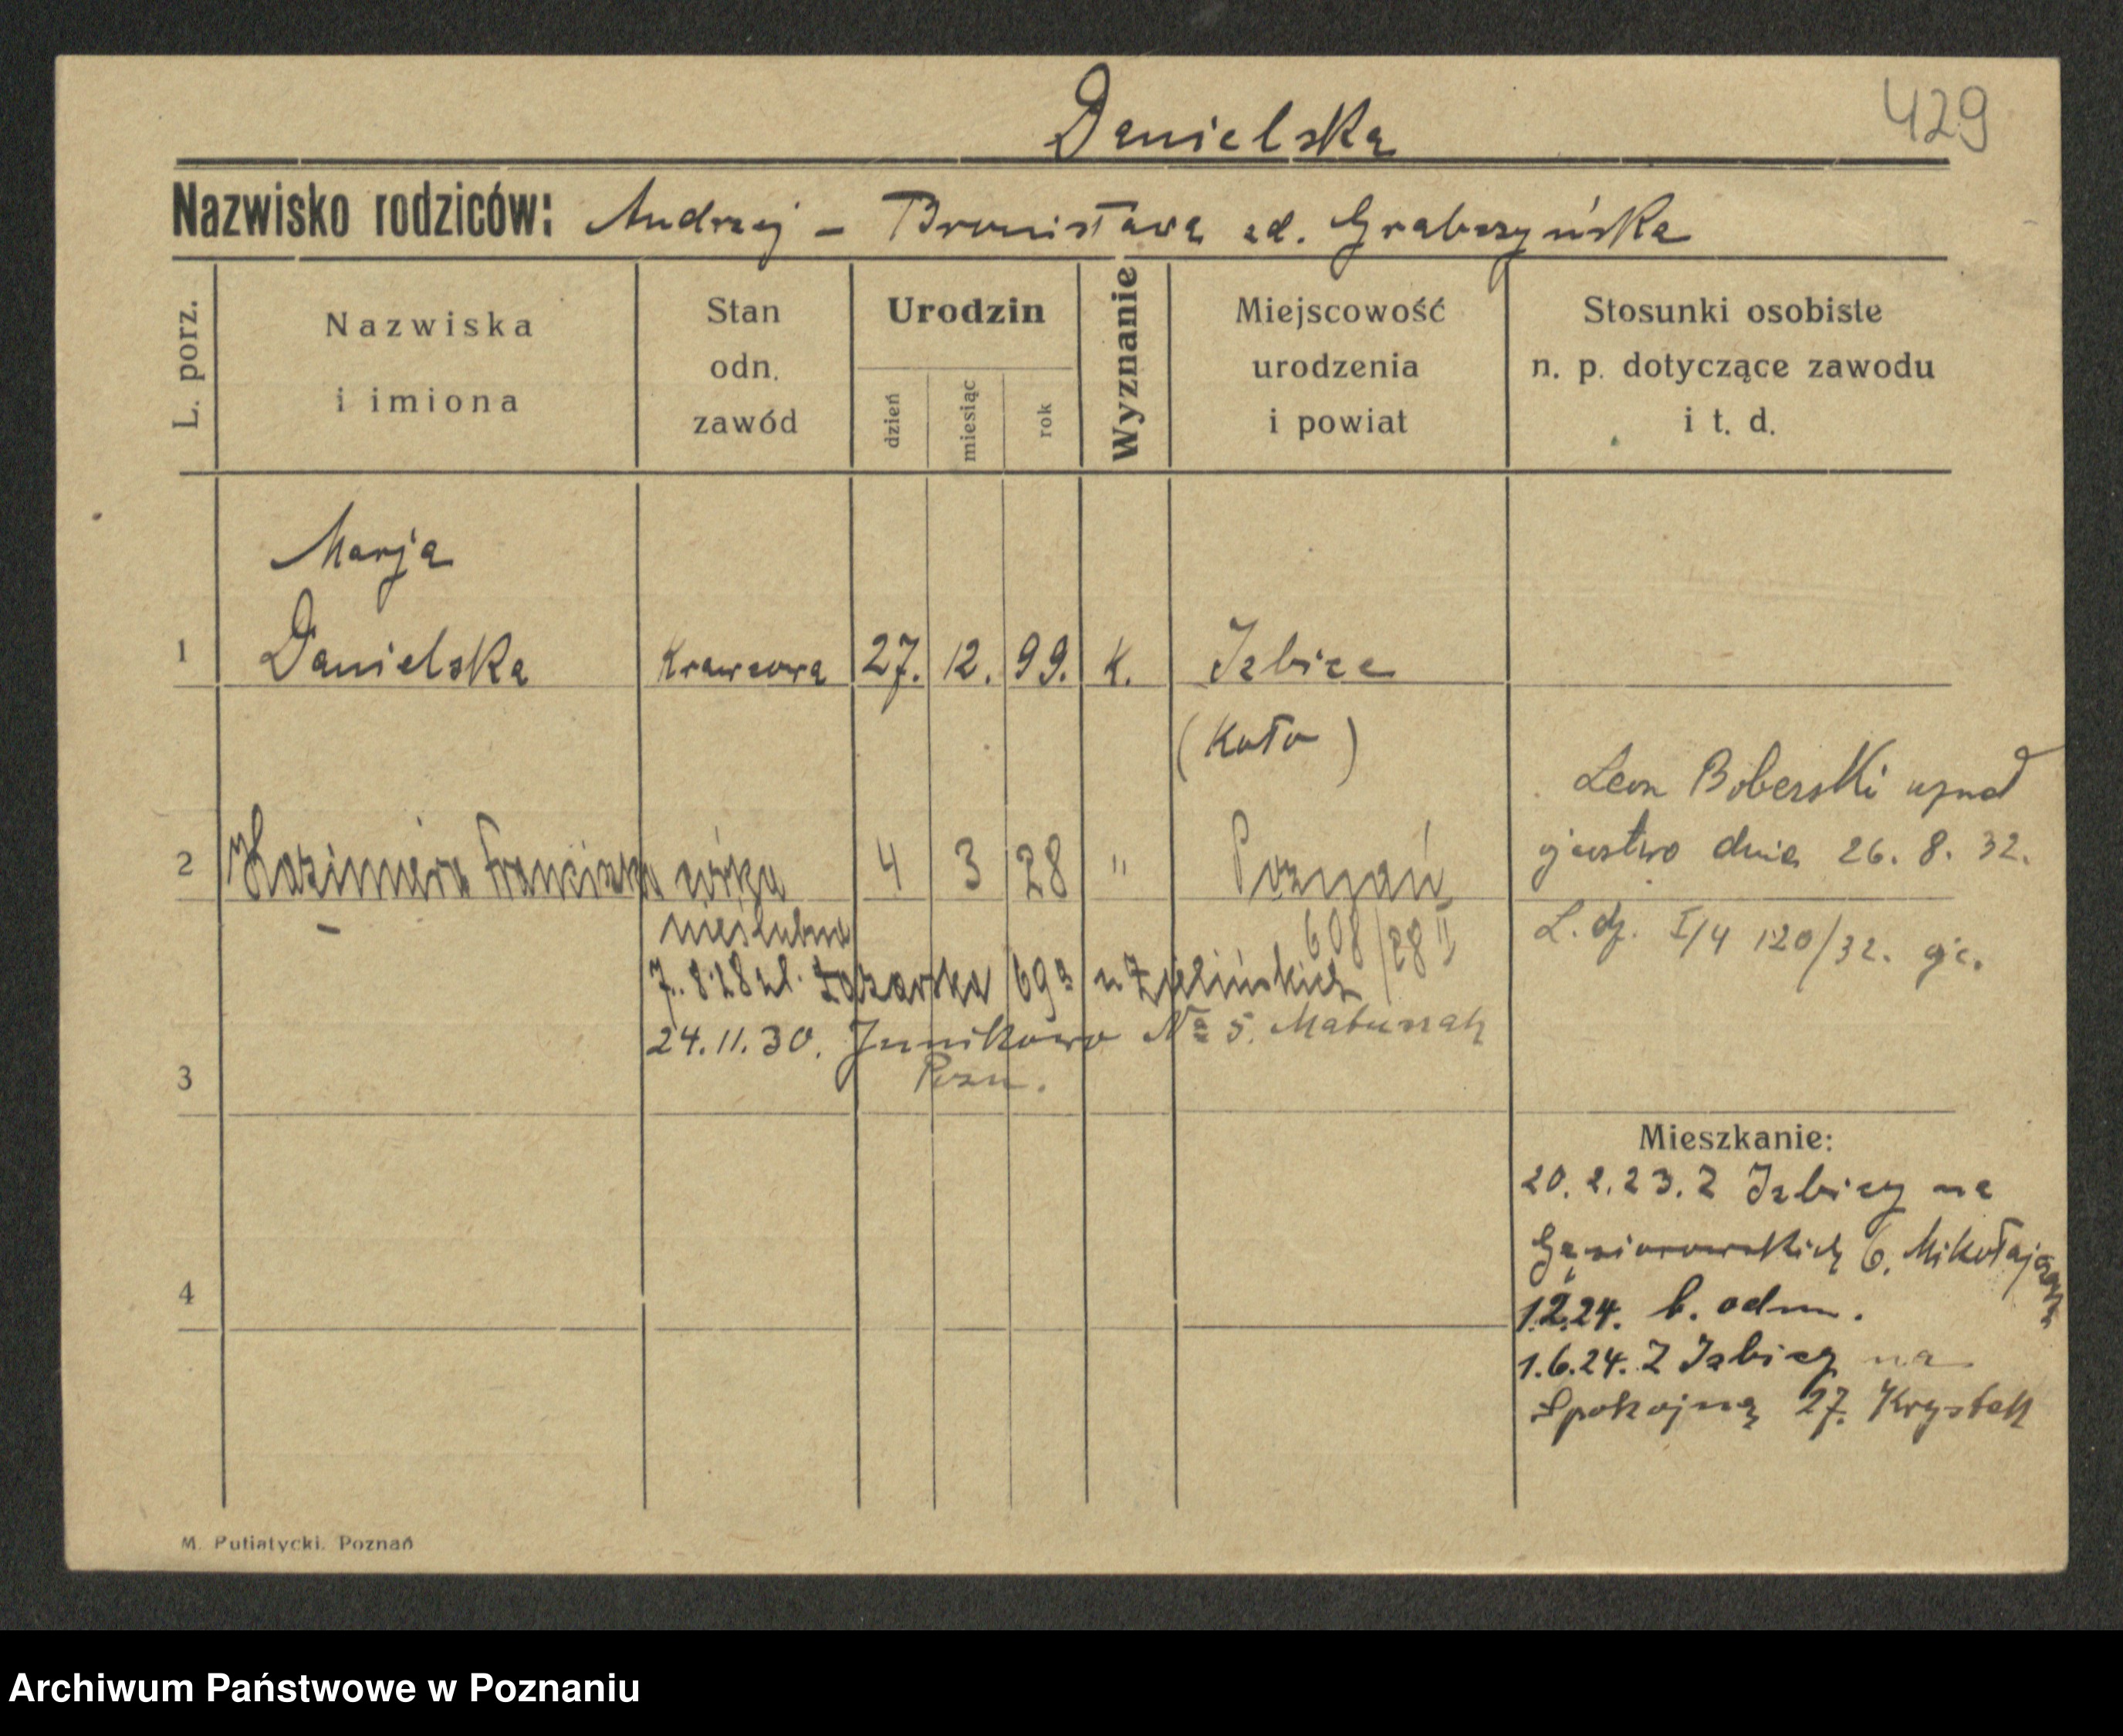 Danielska
429
Nazwisko rodziców: Andrzej – Bronisława zd. Grabczyńska
L. porz.
Nazwiska
i imiona
Stan
odn.
zawód
Urodzin
dzień
miesiąc
rok
Wyznanie
Miejscowość
urodzenia
i powiat
Stosunki osobiste
n. p. dotyczące zawodu
i t. d.
Marja
1 Danielska Krawcowa 27. 12. 99. K. Izbica
(Koło)
2 Kazimiera Franciszka córka 4 3 28 " Poznań
nieślubna
608/28 II
Leon Boberski uznał
ojcostwo dnia 26. 8. 32.
L. dz. I/4 120/32.
7. 8. 28 ul. Łazarska 69a u Zielińskich
24. 11. 30. Junikowo № 5. Matuszak
Pozn.
3
Mieszkanie:
20. 2. 23. Z Izbicy na
Gąsiorowskich 6. Mikołajczak
4
1.2.24. b. odm.
1.6.24. Z Izbicy na
Spokojną 27. Krystek
M. Putiatycki. Poznań
Archiwum Państwowe w Poznaniu